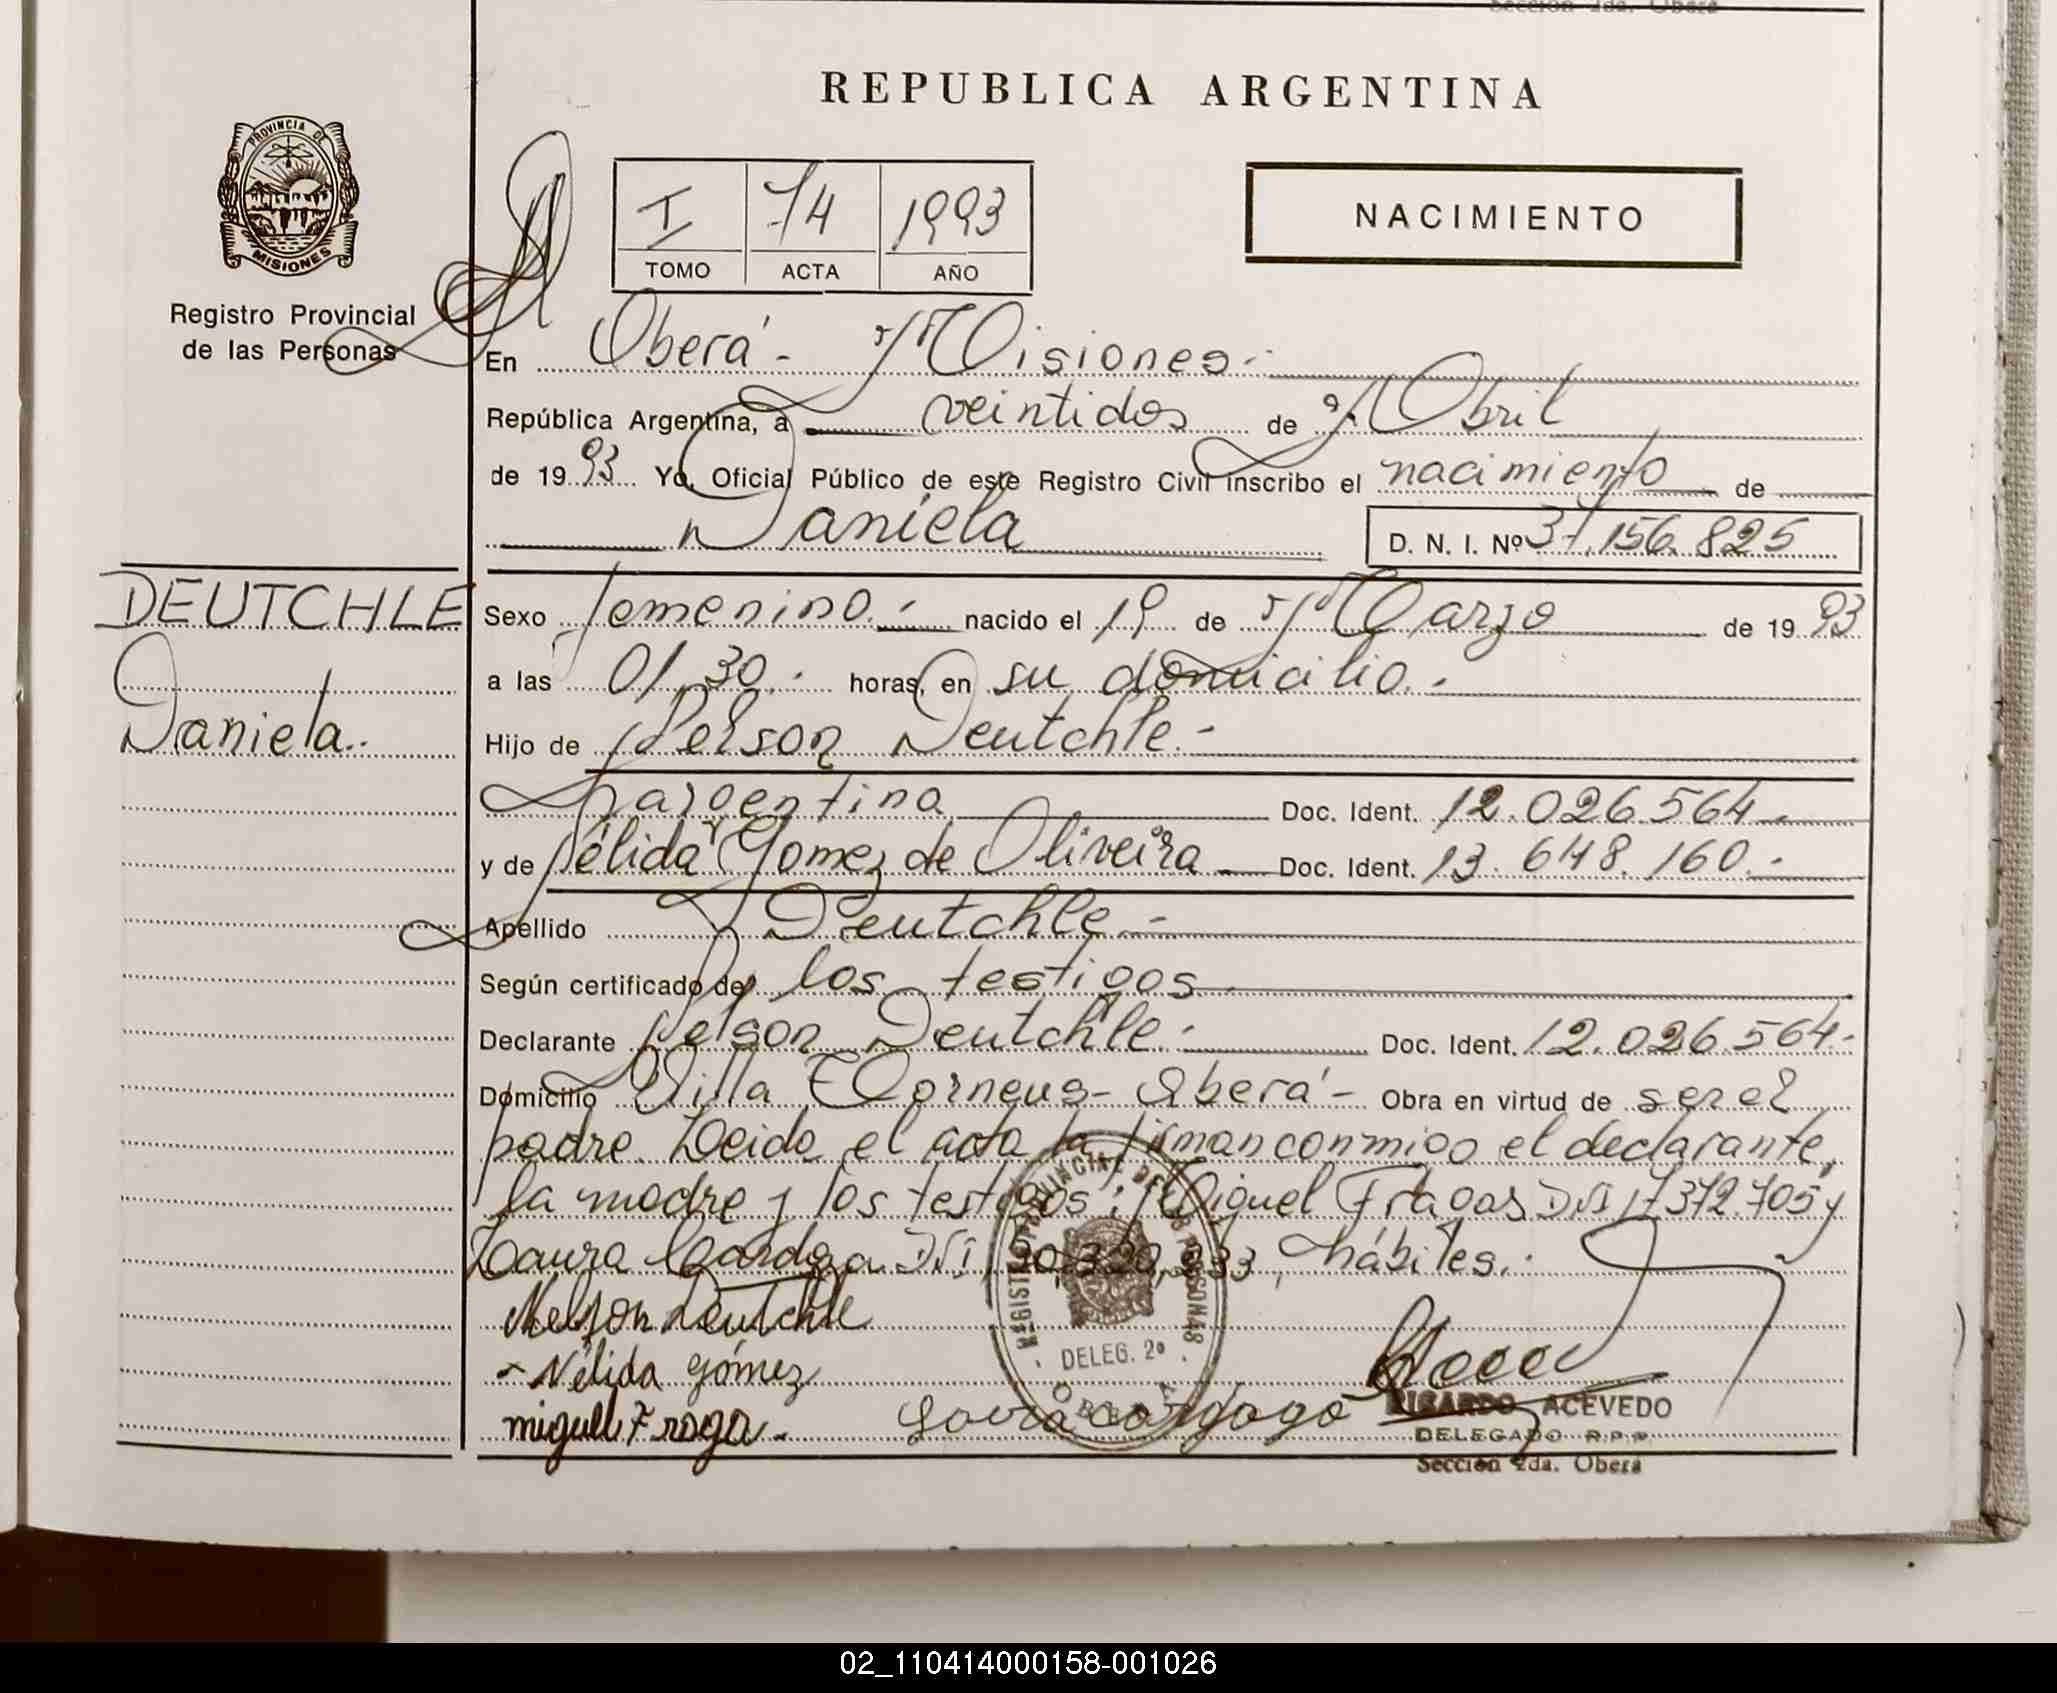 Sección 2da. Oberá
REPUBLICA ARGENTINA
PROVINCIA DE
MISIONES
Registro Provincial
de las Personas
I 74 1993
TOMO ACTA AÑO
NACIMIENTO
En Oberá - Misiones.-
República Argentina, a veintidos de Abril
de 1993 Yo, Oficial Público de este Registro Civil inscribo el nacimiento de
Daniela D. N. I. Nº 37.156.825
DEUTCHLE
Daniela.-
Sexo femenino.- nacido el 19 de Marzo de 1993
a las 01,30.- horas, en su domicilio.-
Hijo de Nelson Deutchle.-
argentina Doc. Ident. 12.026.564.-
y de Nélida Gomez de Oliveira Doc. Ident. 13.648.160.-
Apellido Deutchle.-
Según certificado de los testigos
Declarante Nelson Deutchle.- Doc. Ident. 12.026.564.-
Domicilio Villa - Oberá - Obra en virtud de ser el
padre. Leida el acta la firman conmigo el declarante,
la madre y los testigos: Miguel Fragas DNI 17.372.705 y
Laura DNI hábiles.-
Nelson Deutchle
- Nélida Gómez
miguel Fraga.-
REGISTRO PROVINCIAL DE LAS PERSONAS
DELEG. 2º
OBERA
RICARDO ACEVEDO
DELEGADO R.P.P.
Sección 2da. Oberá
02_110414000158-001026